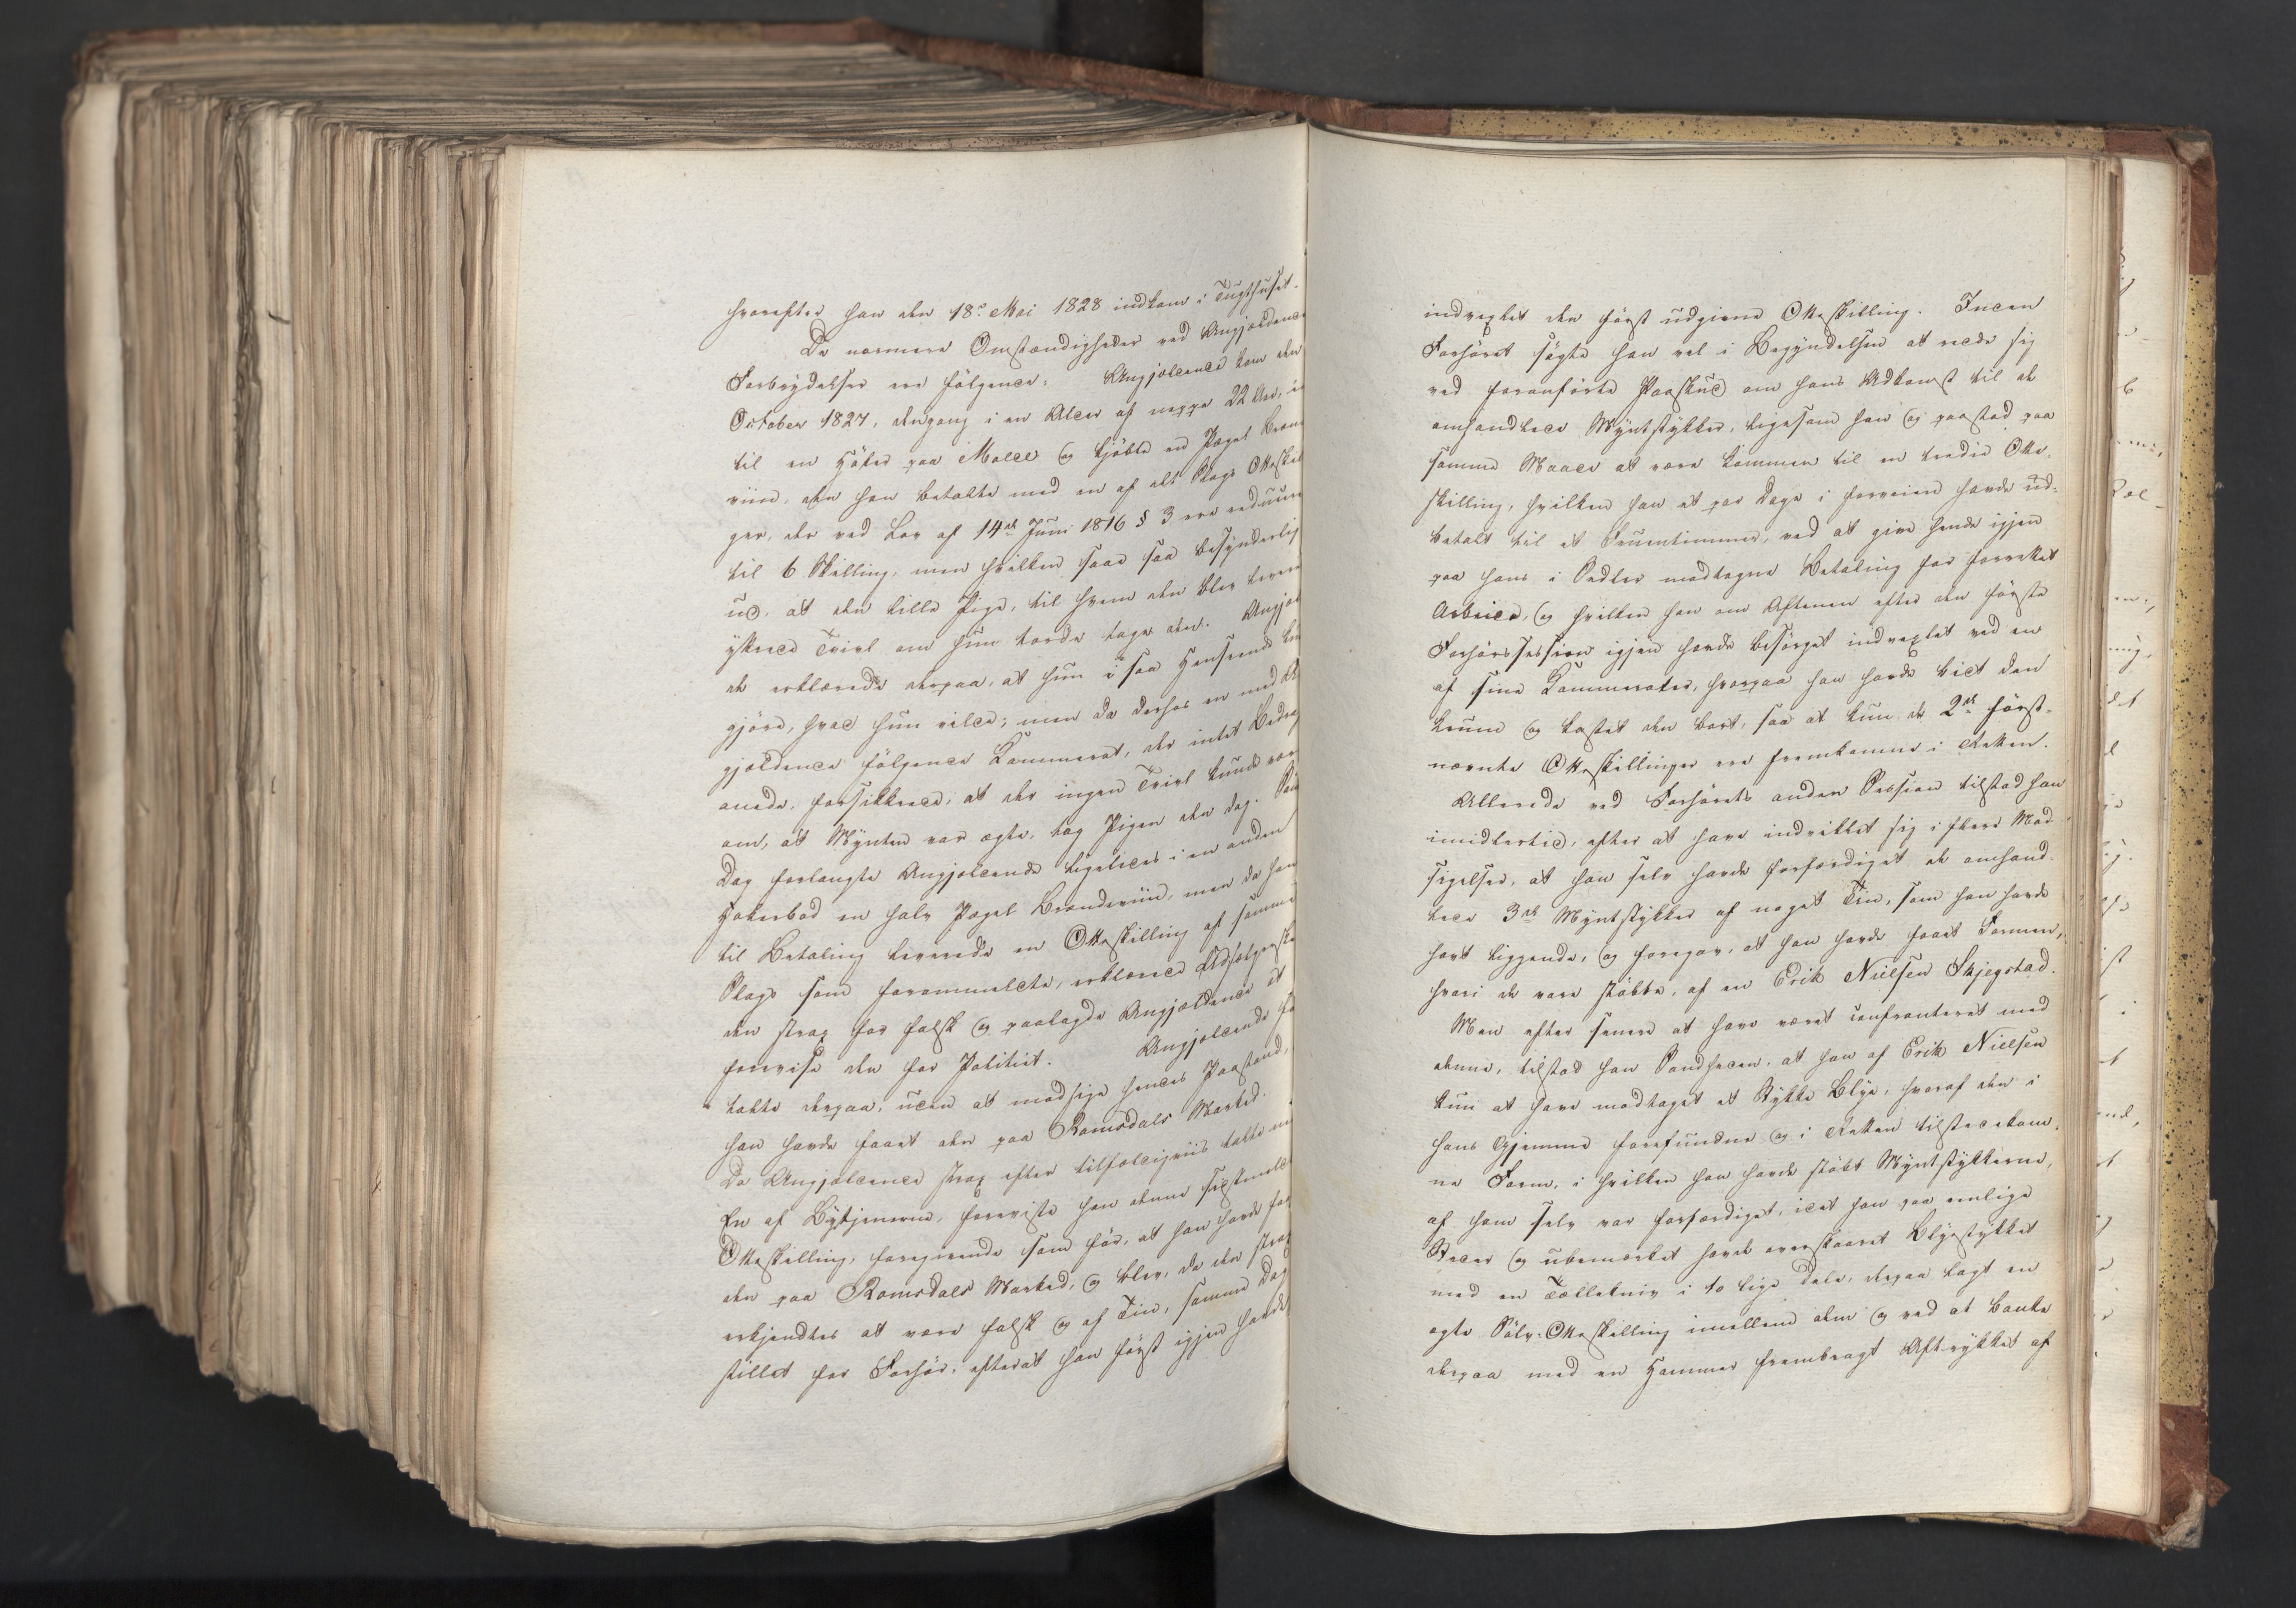 hvorefter han den 18de Mai 1828 indkom i Tugthuset.
De nærmere Omstændigheder ved Angjældende
Forbrydelser ere følgende: Angjældende kom den
October 1827, dengang i en Alder af neppe 22 Aar, i
til en Høker paa Molde og kjøbte en Pægel Bræn
viin, den han betalte med en af det Slags Otteskil
ger, der ved Lov af 14de Juni 1816 § 3 ere reducere
til 6 Skilling, men hvilken saae saa besynderlig
ud, at den lille Pige, til hvem den blev levere
yttrede Tvivl om hun torde tage den. Angjæl
de erklærede derpaa, at hun i saa Henseende ku
gjøre, hvad hun vilde; men da derhos en med An
gjældende følgende Kammerat, der intet Bedra
anede, forsikkrede, at der ingen Tvivl kunde vær
om, at Mynten var ægte, tog Pigen den dog.
Dag forlangte Angjældende ligeledes i en anden
Høkerbod en halv Pægel Brændeviin, men da han
til Betaling leverede en Otteskilling af samme
Slags som forommeldte, erklærede Udsælgerske
den strax for falsk og paalagde Angjældende at
forevise den for Politiet. Angjældende
takte derpaa, uden at modsige hendes Paastand,
han havde faaet den paa Romsdals Marked.
Da Angjældende strax efter tilfældigviis talte
En af Bytjenerne, foreviste han denne sidstmeld
Otteskilling, foregivende som før, at han havde faa
den paa Romsdals Marked, og blev, da den strax
erkjendtes at være falsk og af Tin, samme Dag
stillet for Forhør, efterat han først igjen havde
indvexlet den først udgivne Otteskilling. Inden
Forhøret søgte han vel i Begyndelsen at redde sig
ved foranførte Paaskud om hans Adkomst til de
omhandlede Myntstykker, ligesom han og paastod paa
samme Maade at være kommen til en tredie Otte-
skilling, hvilken han et par Dage i forveien havde ud-
betalt til et Fruentimmer, ved at give hende igjen
paa hans i Sedler modtagne Betaling for forrettet
Arbeide, og hvilken han om Aftenen efter den første
Forhørssession igjen havde besørget indvexlet ved en
af sine Kammerater, hvorpaa han havde bidt den
krum og kastet den bort, saa at kun de 2de først-
nævnte Otteskillinger ere fremkomne i Retten.
Allerede ved Forhørets anden Session tilstod han
imidlertid, efter at have indviklet sig i flere Mod-
sigelser, at han selv havde forfærdiget de omhand-
lede 3de Myntstykker af noget Tin, som han havde
havt liggende, og foregav, at han havde faaet Formen,
hvori de vare støbte, af en Erik Nielsen Skjegstad.
Men efter senere at have været confronteret med
denne, tilstod han Sandheden, at han af Erik Nielsen
kun at have modtaget et Stykke Blye, hvoraf den i
hans Gjemme forefundne og i Retten tilstedekom-
ne Form, i hvilken han havde støbt Myntstykkerne,
af ham selv var forfærdiget, idet han paa eenlige
Steder og ubemærket havde overskaaret Blyestykket
med en Tællekniv i to lige Dele, derpaa lagt en
ægte Sølv-Otteskilling imellem dem og ved at banke
derpaa med en Hammer frembragt Aftrykket af